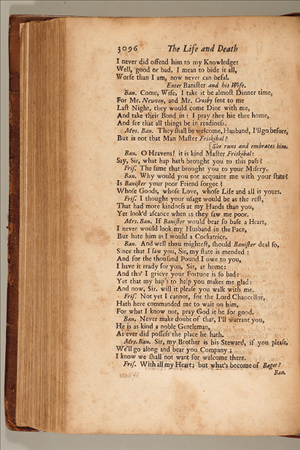 3096 The Life and Death
I never did offend him to my Knowledge:
Well, good or bad, I mean to bide it all,
Worse than I am, now never can befal.
Enter Banister and his Wife.
Ban. Come, Wife, I take it be almost Dinner time,
For Mr. Newton, and Mr. Crosby sent to me
Last Night, they would come Dine with me,
And take their Bond in: I pray thee hie thee home,
And see that all things be in readiness.
Mrs. Ban. They shall be welcome, Husband, I'll go before,
But is not that Man Master Friskiball?
She runs and embraces him.
Ban. O Heavens! it is kind Master Friskiball:
Say, Sir, what hap hath brought you to this pass?
Fris. The same that brought you to your Misery.
Ban. Why would you not acquaint me with your state?
Is Banister your poor Friend forgot?
Whose Goods, whose Love, whose Life and all is yours.
Fris. I thought your usage would be as the rest,
That had more kindness at my Hands than you,
Yet look'd ascance when as they saw me poor.
Mrs. Ban. If Banister would bear so base a Heart,
I never would look my Husband in the Face,
But hate him as I would a Cockatrice.
Ban. And well thou mightest, should Banister deal so,
Since that I saw you, Sir, my state is mended:
And for the thousand Pound I owe to you,
I have it ready for you, Sir, at home:
And tho' I grieve your Fortune is so bad:
Yet that my hap's to help you makes me glad:
And now, Sir, will it please you walk with me.
Fris. Not yet I cannot, for the Lord Chancellor,
Hath here commanded me to wait on him,
For what I know not, pray God it be for good.
Ban. Never make doubt of that, I'll warrant you,
He is as kind a noble Gentleman,
As ever did possess the place he hath.
Mrs. Ban. Sir, my Brother is his Steward, if you please,
We'll go along and bear you Company;
I know we shall not want for welcome there.
Fris. With all my Heart: but what's become of Bagot?
Ban.